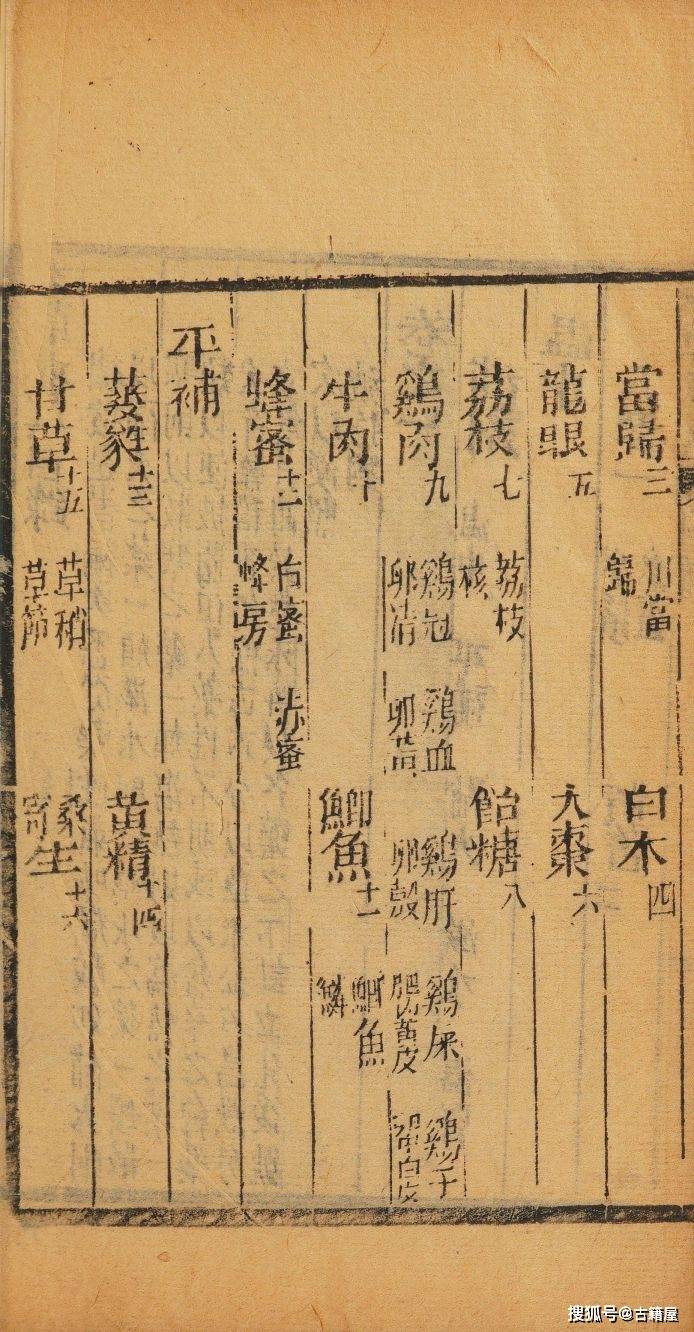 當歸三 川當歸 白木四
龍眼五 大棗六
荔枝七 荔枝核 飴糖八
鷄肉九 鷄冠 鷄血 鷄肝 鷄屎 鷄子 卵清 卵黃 卵殼 黃皮 白皮
牛肉十 鯽魚十一 鯽魚鱗
蜂蜜十二 白蜜 赤蜜 蜂房
平補
十三 黃精十四
甘草十五 草稍 草節 桑寄生十六
搜狐号@古籍屋